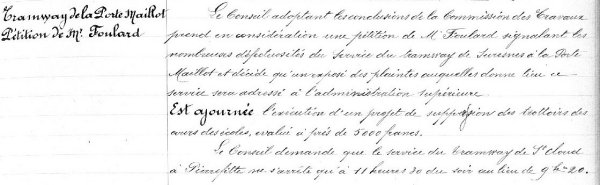 Tramway de la Porte Maillot
Pétition de Mr. Foulard
Le Conseil adoptant les conclusions de la Commission des Travaux
prend en considération une pétition de M. Foulard signalant les
nombreuses défectuosités du Service du tramway de Suresnes à la Porte
Maillot et décide qu'un exposé des plaintes auxquelles donne lieu ce
service sera adressé à l'administration supérieure
Est ajournée l'exécution d'un projet de suppression des trottoirs des
cours des écoles, évalué à près de 5000 francs.
Le Conseil demande que le service du tramway de St Cloud
à Pierrefitte ne s'arrête qu'à 11 heures 30 du soir au lieu de 9 h. 20.